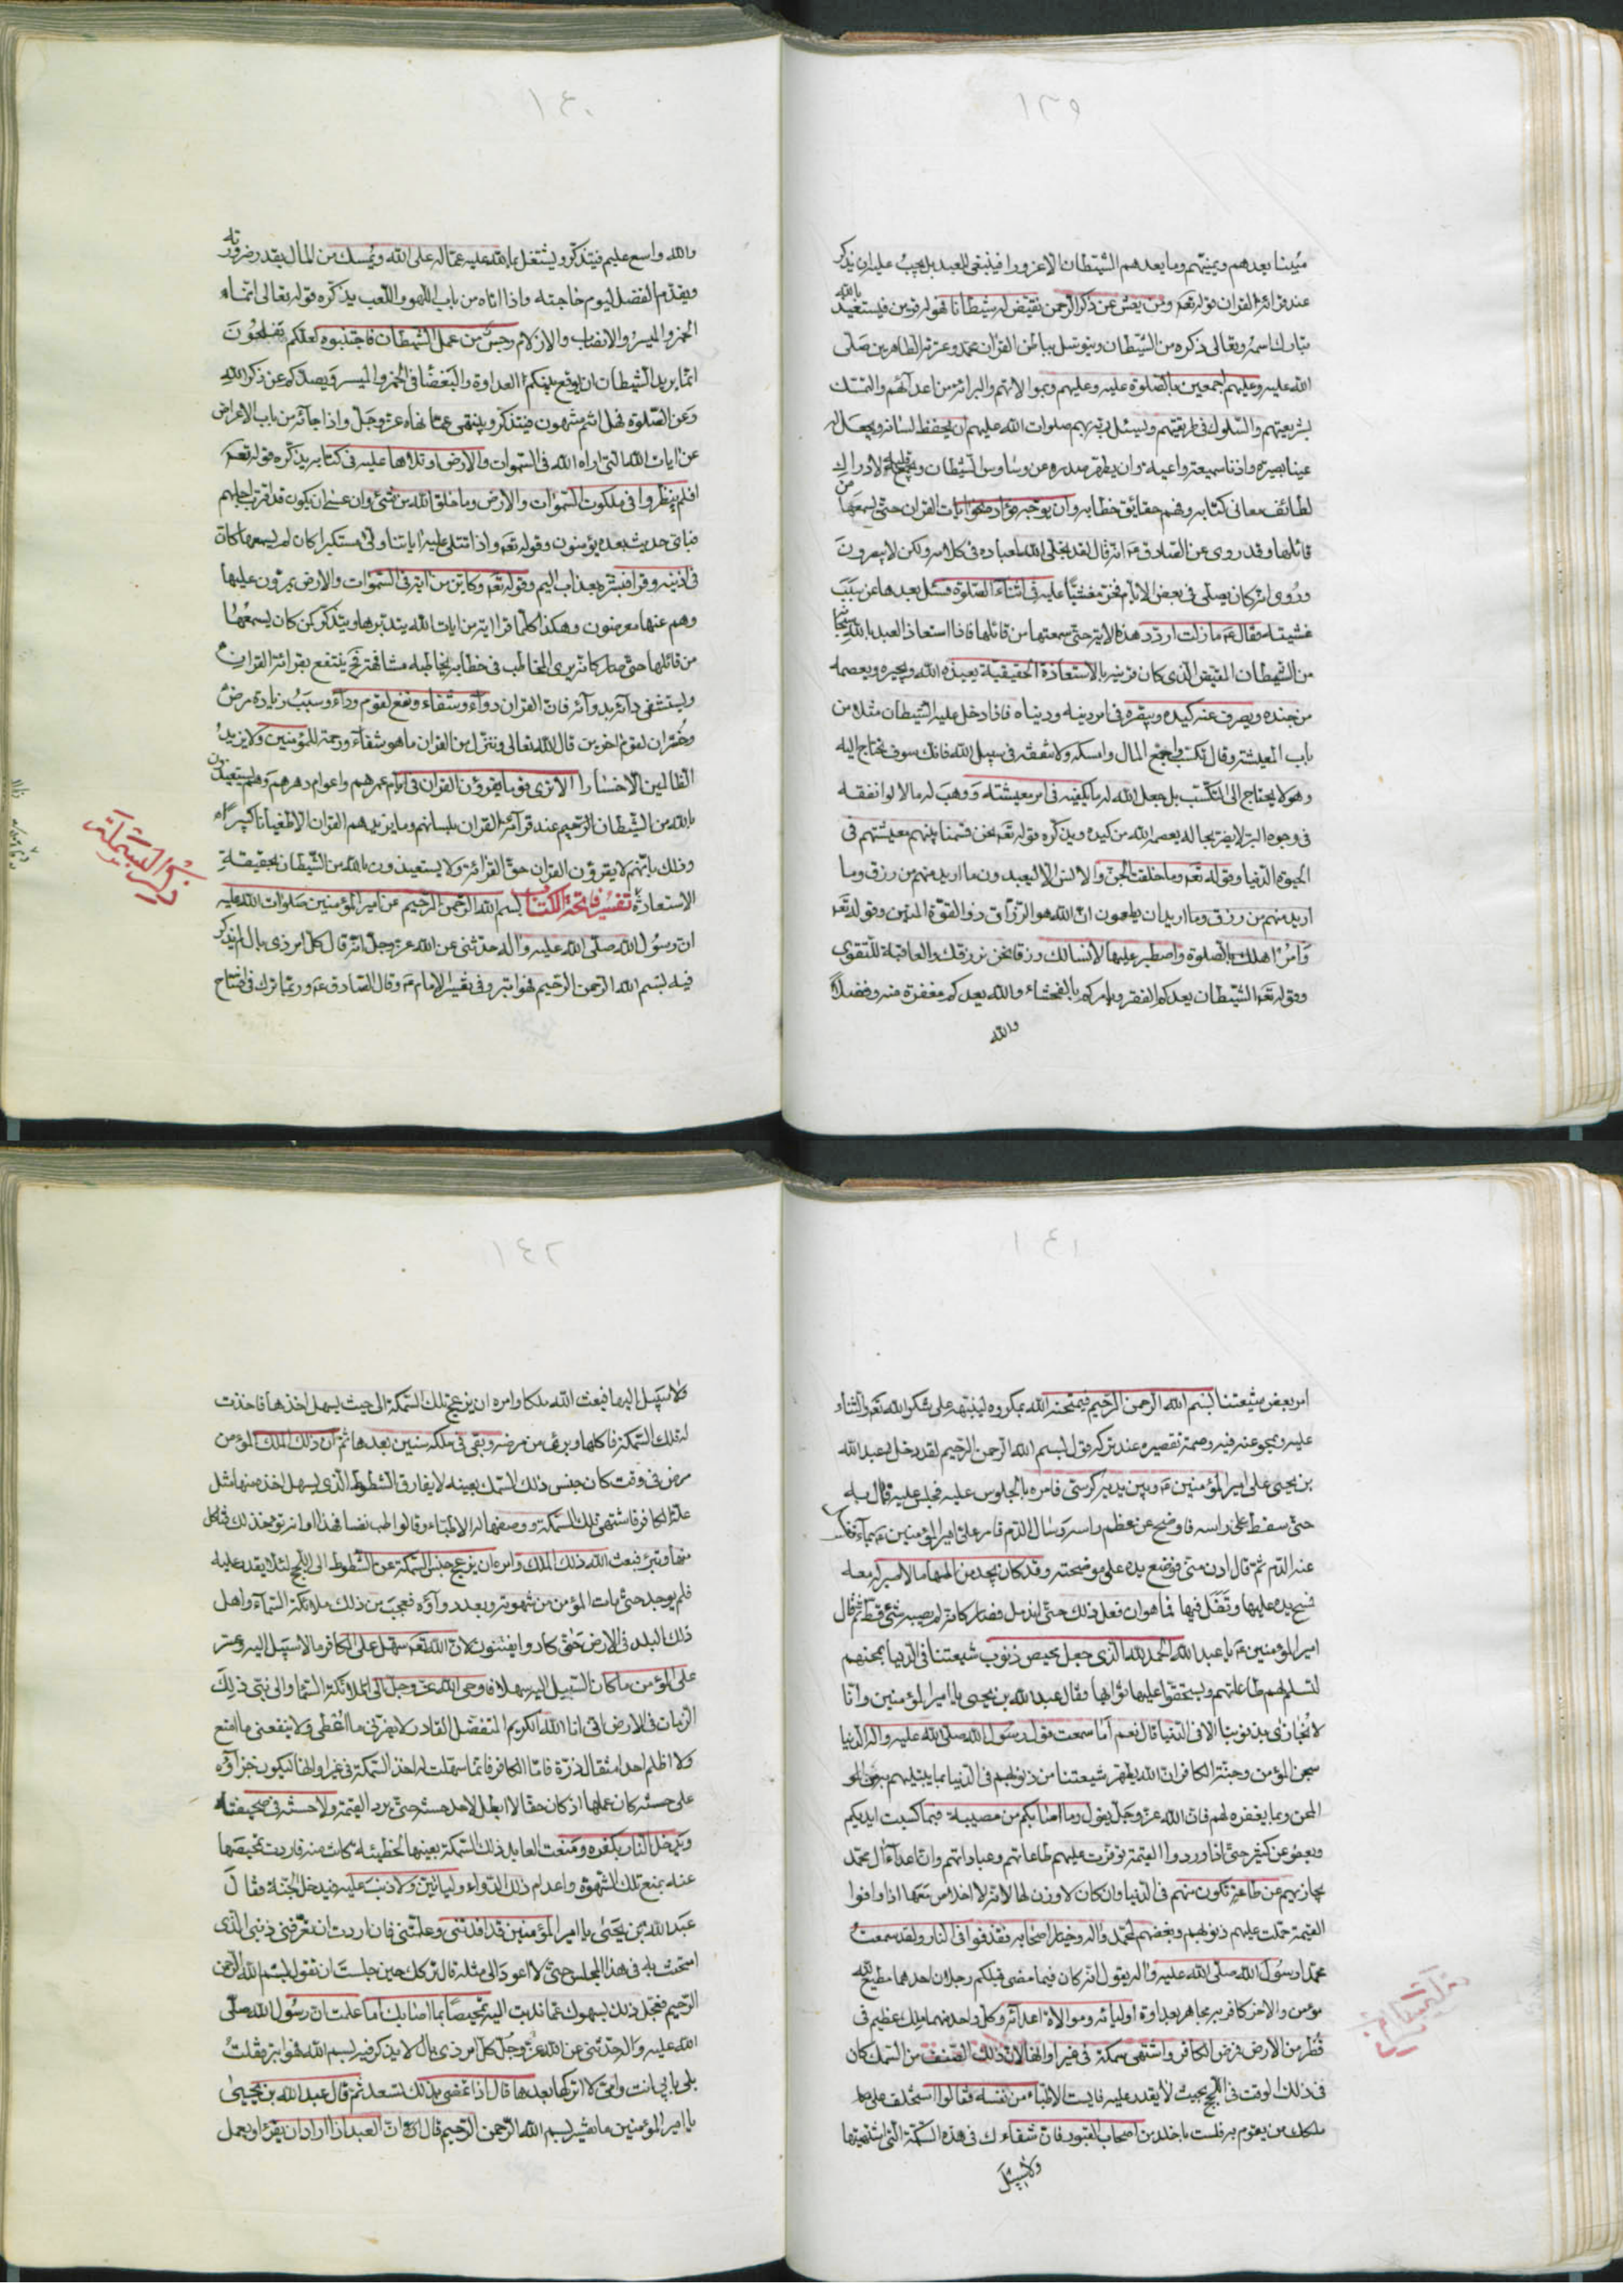 ١٣٩
مبينا يعدهم ويمنيهم وما يعدهم الشيطان الا غرورا فينبغي للعبد بل يجب عليه ان يذكر
عند قرائة القران قوله تعه ومن يعش عن ذكر الرحمن نقيض له شيطانا فهو له قرين فيستعيذ بالله
تبارك اسمه وتعالى ذكره من الشيطان ويتوسل بباطن القران محمد وعترته الطاهرين صلى
الله عليه وعليهم اجمعين بالصلوة عليه وعليهم وبموالاتهم والبرائة من اعدائهم والتمسك
بشريعتهم والسلوك في طريقتهم ويسئل ربه بهم صلوات الله عليهم ان يحفظ لسانه ويجعل له
عينا بصيرة واذنا سميعة واعية وان يطهر صدره عن وساوس الشيطان لادراك
لطائف معاني كتابه وفهم حقائق خطابه وان يوجه فؤاده نحو ايات القران حتى يسمعها من
قائلها وقد روى عن الصادق ع انه قال لقد تجلى الله لعباده في كلامه ولكن لا يبصرون
وروى انه كان يصلى في بعض الايام فخر مغشيا عليه في اثناء الصلوة فسئل بعدها عن سبب
غشيته فقال ع ما زلت اردد هذه الاية حتى سمعتها من قائلها فاذا استعاذ العبد بالله
من الشيطان المقيض الذى كان قرينه بالاستعاذة الحقيقية يعيذه الله ويجيره ويعصمه
من جنده ويصرف عنه كيده ويبصره في امر دينه ودنياه فاذا دخل عليه الشيطان مثلا من
باب المعيشة وقال تكسب واجمع المال وامسكه ولا تنفقه في سبيل الله فانك سوف تحتاج اليه
وهو لا يحتاج الى التكسب بل جعل الله له ما يكفيه في امر معيشته ووهب له مالا لو انفقه
في وجوه البر لا يضر بحاله يعصمه الله من كيده ويذكره قوله تعه نحن قسمنا بينهم معيشتهم في
الحيوة الدنيا وقوله تعه وما خلقت الجن والانس الا ليعبدون ما اريد منهم من رزق وما
اريد منهم من رزق وما اريد ان يطعمون ان الله هو الرزاق ذو القوة المتين وقوله تعه
وامر اهلك بالصلوة واصطبر عليها لا نسالك رزقا نحن نرزقك والعاقبة للتقوى
وقوله تعه الشيطان يعدكم الفقر ويامركم بالفحشاء والله يعدكم مغفرة منه وفضلا
والله
١٤٠
والله واسع عليم فيتذكر ويشتغل بما لله عليه عما له على الله ويمسك من المال بقدر ضرورته
ويقدم الفضل ليوم حاجته واذا اتاه من باب اللهو واللعب يذكره قوله تعالى انما
الخمر والميسر والانصاب والازلام رجس من عمل الشيطان فاجتنبوه لعلكم تفلحون
انما يريد الشيطان ان يوقع بينكم العداوة والبغضا في الخمر والميسر ويصدكم عن ذكر الله
وعن الصلوة فهل انتم منتهون فيتذكر وينتهى عما نهاه عز وجل واذا جائه من باب الاعراض
عن ايات الله التى اراه الله في السموات والارض او تلاها عليه في كتابه يذكره قوله تعه
افلم ينظروا في ملكوت السموات والارض وما خلق الله من شئ وان عسى ان يكون قد اقترب اجلهم
فباى حديث بعده يؤمنون وقوله تعه واذا تتلى عليه اياتنا ولى مستكبرا كان لم يسمعها كان
في اذنيه وقرا فبشره بعذاب اليم وقوله تعه وكاين من اية في السموات والارض يمرون عليها
وهم عنها معرضون وهكذا كلما قرا اية من ايات الله يتدبرها ويتذكر كمن كان يسمعها
من قائلها حتى صار كانه يرى المخاطب في خطابه يخاطبه مشافهة فح ينتفع بقرائة القران
ويستشفى دائه بدوائه فان القران دواء وشفاء ونفع لقوم وداء وسبب زيادة مرض
وخسران لقوم اخرين قال الله تعالى وننزل من القران ما هو شفاء ورحمة للمؤمنين ولا يزيد
الظالمين الا خسارا الا ترى قوما يقرؤن القران في ايام عمرهم واعوام دهرهم وهم يستعيذون
بالله من الشيطان الرجيم عند قرائة القران بلسانهم وما يزيدهم القران الا طغيانا كبيرا
وذلك بانهم لا يقرؤن القران حق القرائة ولا يستعيذون بالله من الشيطان بحقيقة
الاستعاذة تفسير فاتحة الكتاب بسم الله الرحمن الرحيم عن امير المؤمنين صلوات الله عليه
ان رسول الله صلى الله عليه واله حدثنى عن الله عز وجل انه قال كل امر ذى بال لم يذكر
فيه بسم الله الرحمن الرحيم فهو ابتر وفي تفسير الامام ع وقال الصادق ع وربما ترك في افتتاح
ذكر البسملة
١٤١
امر بعض شيعتنا بسم الله الرحمن الرحيم فيمتحنه الله بمكروه لينبهه على شكر الله تعه والثناء
عليه ويمحو عنه فيه وصمة تقصيره عند تركه قول بسم الله الرحمن الرحيم لقد دخل عبد الله
بن يحيى على امير المؤمنين ع وبين يديه كرسى فامره بالجلوس عليه فجلس عليه فمال به
حتى سقط على راسه فاوضح عن عظم راسه وسال الدم فامر على امير المؤمنين ع بماء فغسل
عنه الدم ثم قال ادن منى فوضع يده على موضحته وقد كان يجد من المها ما لا صبر له معه
فمسح يده عليها وتفل فيها فما هو ان فعل ذلك حتى اندمل فصار كانه لم يصبه شئ قط ثم قال
امير المؤمنين ع يا عبد الله الحمد لله الذى جعل تمحيص ذنوب شيعتنا في الدنيا بمحنهم
لتسلم لهم طاعاتهم ويستحقوا عليها ثوابها فقال عبد الله بن يحيى يا امير المؤمنين وانا
لا نجازى بذنوبنا الا في الدنيا قال نعم اما سمعت قول رسول الله صلى الله عليه واله الدنيا
سجن المؤمن وجنة الكافر ان الله يطهر شيعتنا من ذنوبهم في الدنيا بما يبتليهم به من
المحن وبما يغفره لهم فان الله عز وجل يقول وما اصابكم من مصيبة فبما كسبت ايديكم
ويعفو عن كثير حتى اذا وردوا القيمة توفرت عليهم طاعاتهم وعباداتهم وان اعداء ال محمد
يجازيهم عن طاعة تكون منهم في الدنيا وان كان لا وزن لها لانه لا اخلاص معها اذا وافوا
القيمة حملت عليهم ذنوبهم وبغضهم لمحمد واله وخيار اصحابه فقذفوا في النار ولقد سمعت
محمدا رسول الله صلى الله عليه واله يقول انه كان فيما مضى قبلكم رجلان احدهما مطيع لله
مؤمن والاخر كافر به مجاهر بعداوة اوليائه وموالاة اعدائه وكل واحد منهما ملك عظيم في
قطر من الارض فمرض الكافر واشتهى سمكة في غير اوانها لان ذلك الصنف من السمك كان
في ذلك الوقت في اللجج بحيث لا يقدر عليه فايست الاطباء من نفسه فقالوا استخلف على
ملكك من يقوم به فلست باخلد من اصحاب القبور فان شفاءك في هذه السمكة التى اشتهيتها
ولا سبيل
١٤٢
ولا سبيل اليها فبعث الله ملكا وامره ان يزعج تلك السمكة الى حيث يسهل اخذها فاخذت
له تلك السمكة فاكلها وبرئ من مرضه وبقى في ملكه سنين بعدها ثم ان ذلك الملك المؤمن
مرض في وقت كان جنس ذلك السمك بعينه لا يفارق الشطوط الذى يسهل اخذه منها مثل
علة الكافر فاشتهى تلك السمكة ووصفها له الاطباء وقالوا طب نفسا فهذا اوانه تؤخذ لك فتاكل
منها وتبرء فبعث الله ذلك الملك وامره ان يزعج جنس السمكة عن الشطوط الى اللجج لئلا يقدر عليه
فلم يوجد حتى مات المؤمن من شهوته وبعد دوائه فعجب من ذلك ملائكة السماء واهل
ذلك البلد في الارض حتى كادوا يفتنون لان الله تعه سهل على الكافر ما لا سبيل اليه وعسر
على المؤمن ما كان السبيل اليه سهلا فاوحى الله عز وجل الى ملائكة السماء والى نبى ذلك
الزمان في الارض انى انا الله الكريم المتفضل القادر لا يضرنى ما اعطى ولا ينفعنى ما امنع
ولا اظلم احدا مثقال ذرة فاما الكافر فانما سهلت له اخذ السمكة في غير اوانها ليكون جزاؤه
على حسنة كان عملها اذ كان حقا الا ابطل لاحد حسنة حتى يرد القيمة ولا حسنة في صحيفته
ويدخل النار بكفره ومنعت العابد ذلك السمكة بعينها لخطيئة كانت منه فاردت تمحيصها
عنه بمنع تلك الشهوة واعدام ذلك الدواء وليأتين ولا ذنب عليه فيدخل الجنة فقال
عبد الله بن يحيى يا امير المؤمنين قد افدتنى وعلمتنى فان اردت ان تعرفنى ذنبى الذى
امتحنت به في هذا المجلس حتى لا اعود الى مثله قال تركك حين جلست ان تقول بسم الله الرحمن
الرحيم فجعل ذلك بسهوك عما ندبت اليه تمحيصا بما اصابك اما علمت ان رسول الله صلى
الله عليه واله حدثنى عن الله عز وجل كل امر ذى بال لا يذكر فيه بسم الله فهو ابتر فقلت
بلى بابى انت وامى لا اتركها بعدها قال اذا تحظى بذلك وتسعد ثم قال عبد الله بن يحيى
يا امير المؤمنين ما تفسير بسم الله الرحمن الرحيم قال ان العبد اذا اراد ان يقرء او يعمل